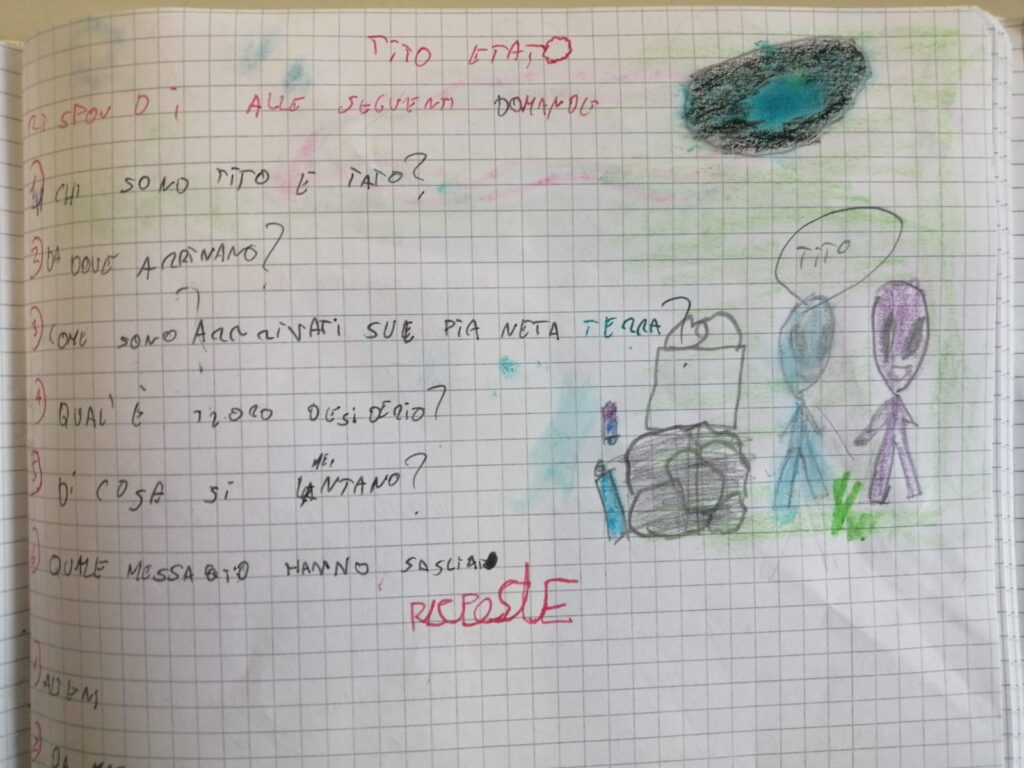 TITO E TATO
RISPONDI ALLE SEGUENTI DOMANDE
1) CHI SONO TITO E TATO?
2) DA DOVE ARRIVANO?
3) COME SONO ARRRIVATI SUE PIA NETA TERRA?
4) QUAL'È DESIDERIO?
5) DI COSA SI NTANO?
6) QUALE MESSAGGIO HANNO
TITO
RISPOSTE
1) ALIENI
2) DA